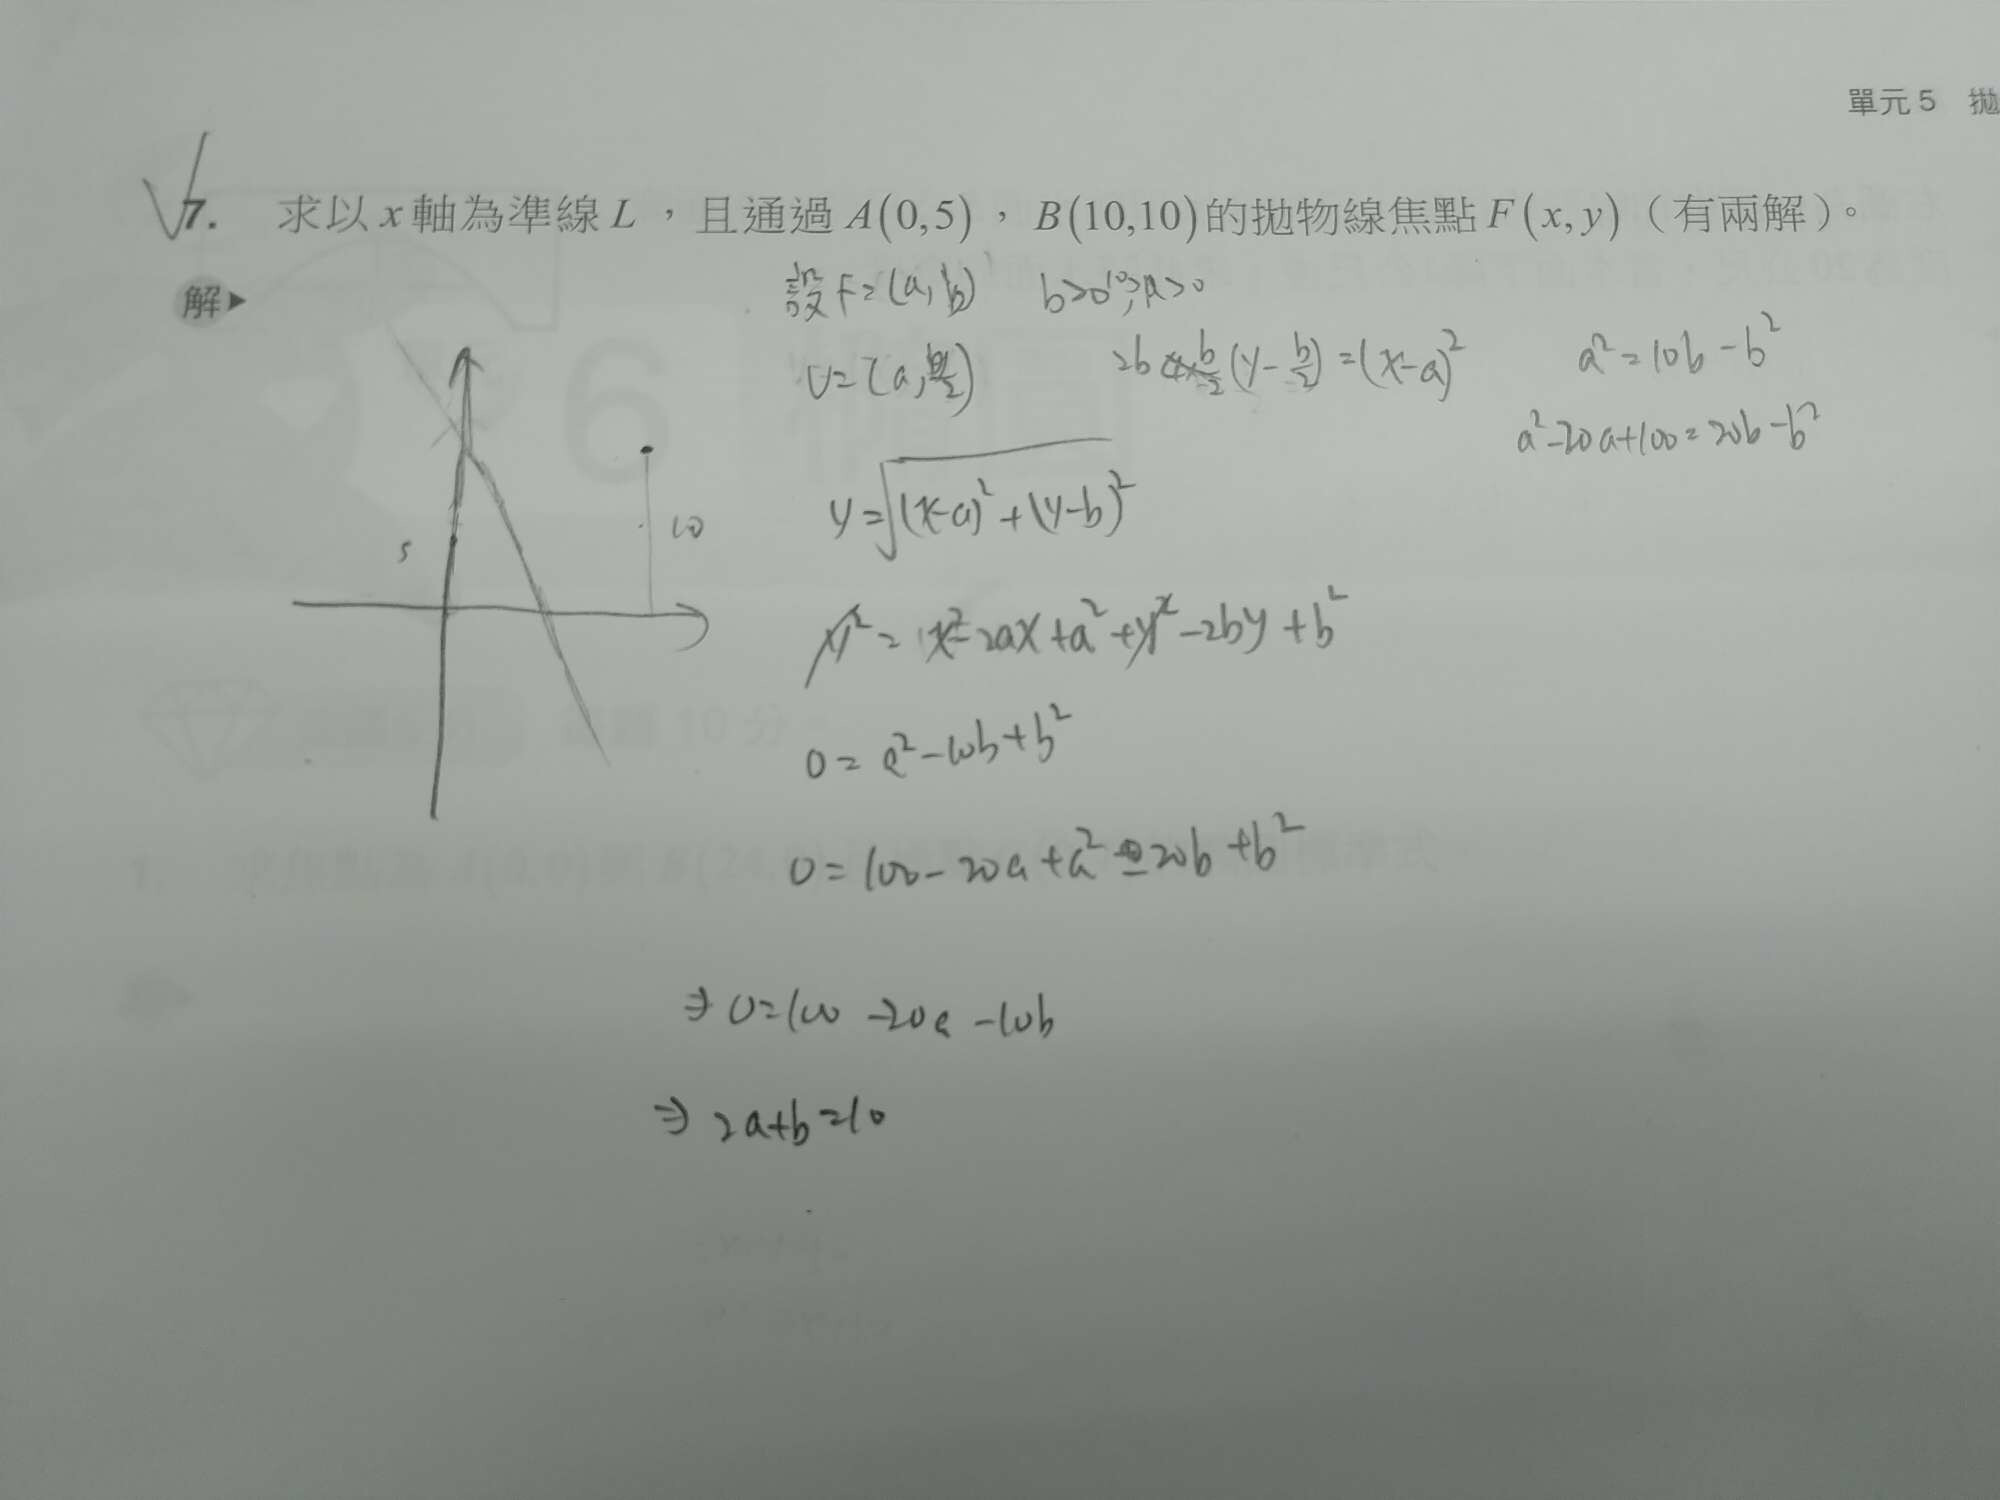 單元 5 拋
7. 求以 x 軸為準線 L ，且通過 A(0,5) ， B(10,10) 的拋物線焦點 F(x,y)（有兩解）。
解▶
設 F=(a,b) b>0 10>a>0
V=(a,b/2) 2b (y-b/2)=(x-a)² a²=10b-b²
a²-20a+100=20b-b²
y=√((x-a)²+(y-b)²)
5 10
y²=x²-2ax+a²+y²-2by+b²
0=a²-10b+b²
0=100-20a+a²-20b+b²
⇒ 0=100-20a-10b
⇒ 2a+b=10